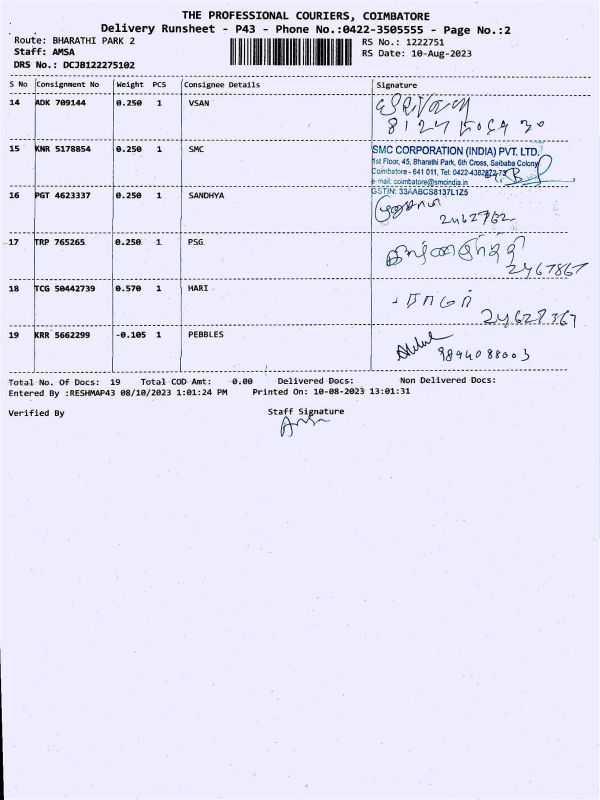 THE PROFESSIONAL COURIERS, COIMBATORE
Delivery Runsheet - P43 - Phone No.:0422-3505555 - Page No.:2
Route: BHARATHI PARK 2 RS No.: 1222751
Staff: AMSA RS Date: 10-Aug-2023
DRS No.: DCJB122275102
S No Consignment No Weight PCS Consignee Details Signature
14 ADK 709144 0.250 1 VSAN
15 KNR 5178854 0.250 1 SMC
SMC CORPORATION (INDIA) PVT. LTD.
1st Floor, 45, Bharathi Park, 6th Cross, Saibaba Colony
Coimbatore - 641 011, Tel: 0422-4382872-73
e mail: coimbatore@smcindia.in
GSTIN: 33AABCS8137L1Z5
16 PGT 4623337 0.250 1 SANDHYA
2462762
17 TRP 765265 0.250 1 PSG
2467867
18 TCG 50442739 0.570 1 HARI
24627367
19 KRR 5662299 -0.105 1 PEBBLES
9894088003
Total No. Of Docs: 19 Total COD Amt: 0.00 Delivered Docs: Non Delivered Docs:
Entered By :RESHMAP43 08/10/2023 1:01:24 PM Printed On: 10-08-2023 13:01:31
Verified By Staff Signature
Amsa